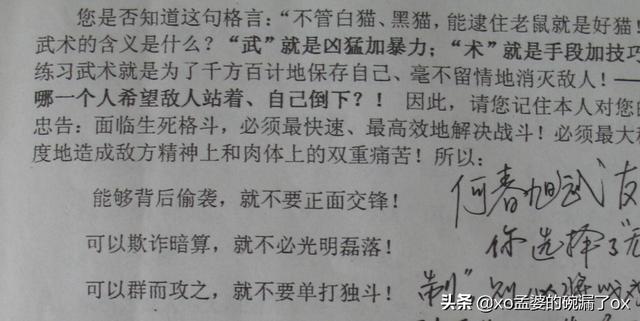 您是否知道这句格言:“不管白猫、黑猫,能逮住老鼠就是好猫!
武术的含义是什么?“武”就是凶猛加暴力;“术”就是手段加技巧
练习武术就是为了千方百计地保存自己、毫不留情地消灭敌人!—
哪一个人希望敌人站着、自己倒下?! 因此,请您记住本人对您的
忠告:面临生死格斗,必须最快速、最高效地解决战斗!必须最大程
度地造成敌方精神上和肉体上的双重痛苦!所以:
能够背后偷袭,就不要正面交锋!
何春旭武友
可以欺诈暗算,就不必光明磊落!
你选择了“无
可以群而攻之,就不要单打独斗!
制”
头条 @xo孟婆的碗漏了ox